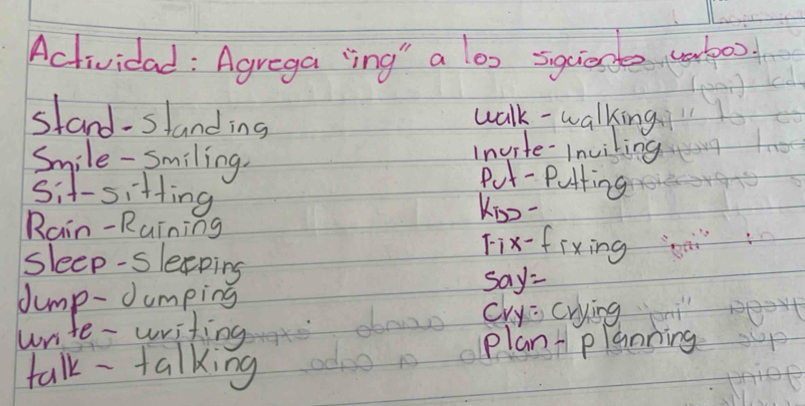 Actividad: Agrega "ing" a los siguientes verbos.
Stand - Standing
Smile - Smiling.
Sit - sitting
Rain - Raining
Sleep - Sleeping
Jump - Jumping
Write - writing
talk - talking
walk - walking
Invite - Inviting
Put - Putting
Kiss -
Fix - fixing
Say =
Cry = Crying
Plan - planning